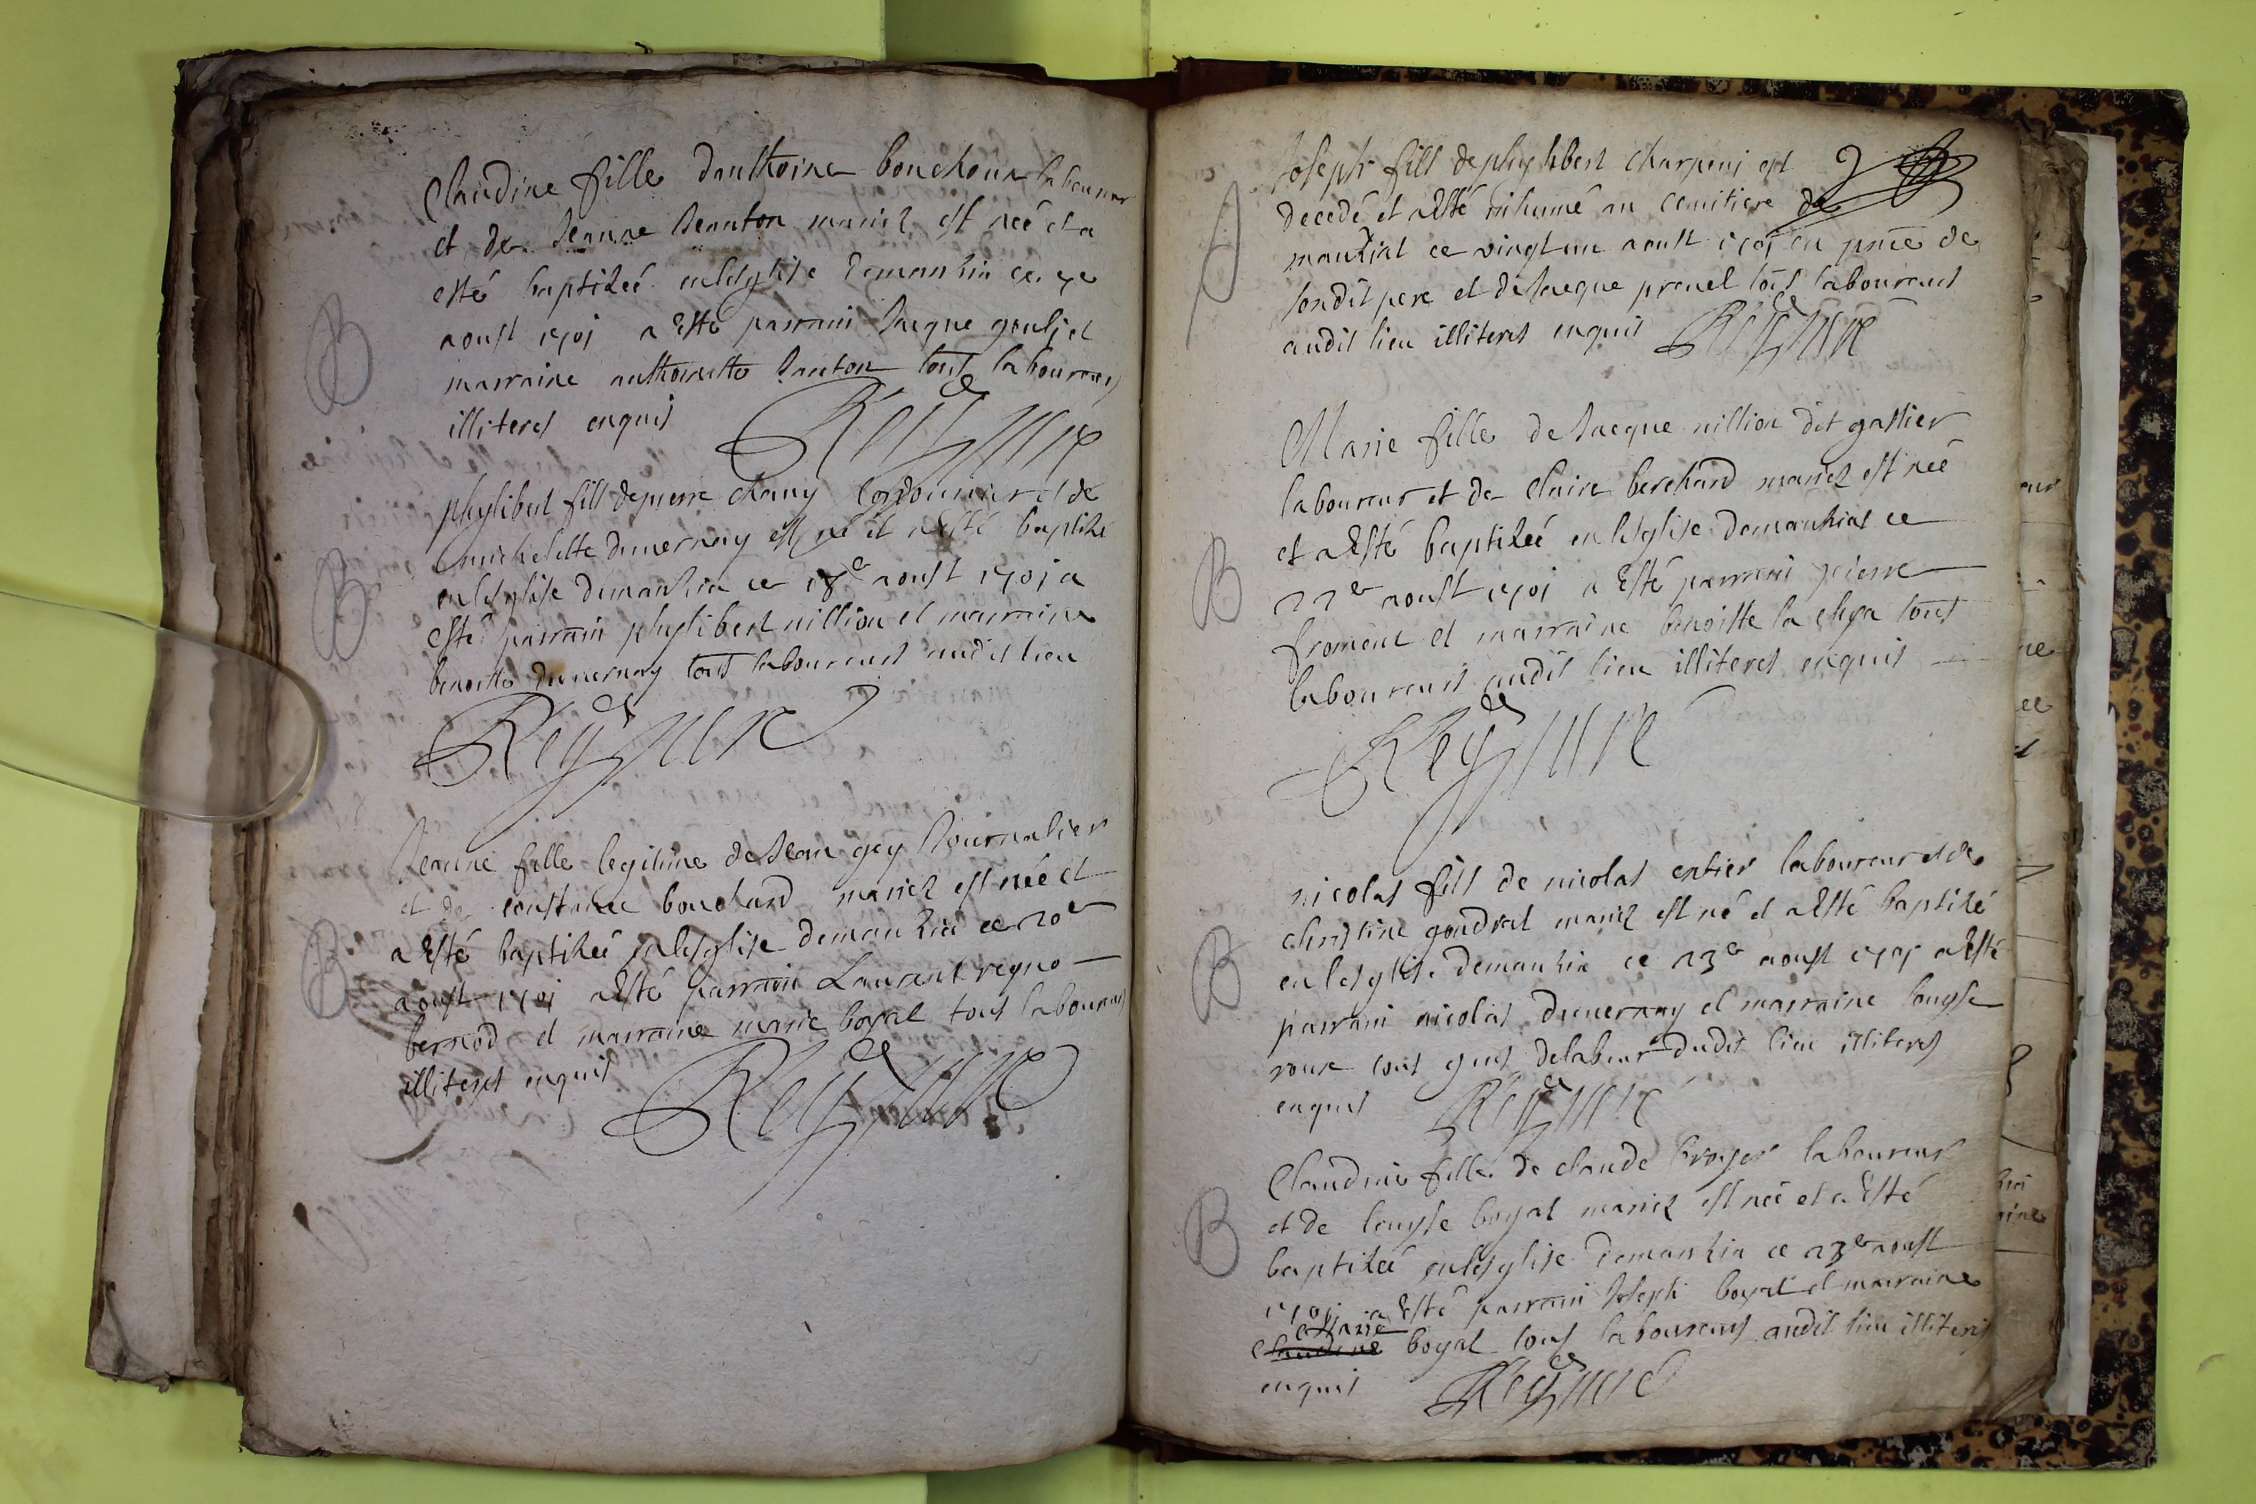 Claudine fille danthoine bouchoux laboureur
et de Jeanne Jeanton mariez est neé et a
esté baptizeé en lesglise demanzia ce
aoust 1701 a esté parrain Jacque
marraine anthoinette Janton tous laboureurs
illiteres enquis
Reyd cure
B
phylibert fils de pierre chany cordonnier et de
michelette duvernay est né et a esté baptizé
en lesglise demanzia ce 18e aoust 1701 a
esté parrain phylibert nillion et marraine
benoitte duvernay tous laboureurs audit lieu
Rey cure
B
Jeanne fille legitime de Jean gey Journalier
et de constance bouchard mariez est neé et
a esté baptizeé en lesglise demanzia ce 20e
aoust 1701 a esté parrain Laurent regno
bernod et marraine marie boyat tous laboureurs
illiteres enquis
Rey cure
B
Joseph fils de phylibert charpeni est
decedé et a esté inhumé au cemitiere de
manziat ce vingt un aoust 1701 en pnce de
sondit pere et de Jacque prevel tous laboureurs
audit lieu illiteres enquis
Rey cure
Marie fille de Jacque nillion dit gallier
laboureur et de Claire berchard mariez est neé
et a esté baptizeé en lesglise demanziat ce
22e aoust 1701 a esté parrain pierre
froment et marraine benoitte la tous
laboureurs audit lieu illiteres enquis
Rey cure
B
nicolas fils de nicolas laboureur et de
christine gondrat mariez est né et a esté baptizé
en lesglise demanzia ce 23e aoust 1701 a esté
parrain nicolas duvernay et marraine louyse
roux tous gens delabeur dudit lieu illiteres
enquis
Rey cure
B
Claudine fille de claude broyer laboureur
et de louyse boyat mariez est neé et a esté
baptizeé en lesglise demanzia ce 23e aoust
1701 a esté parrain Joseph boyat et marraine
Marie
Claudine boyat tous laboureurs audit lieu illiteres
enquis
Rey cure
B